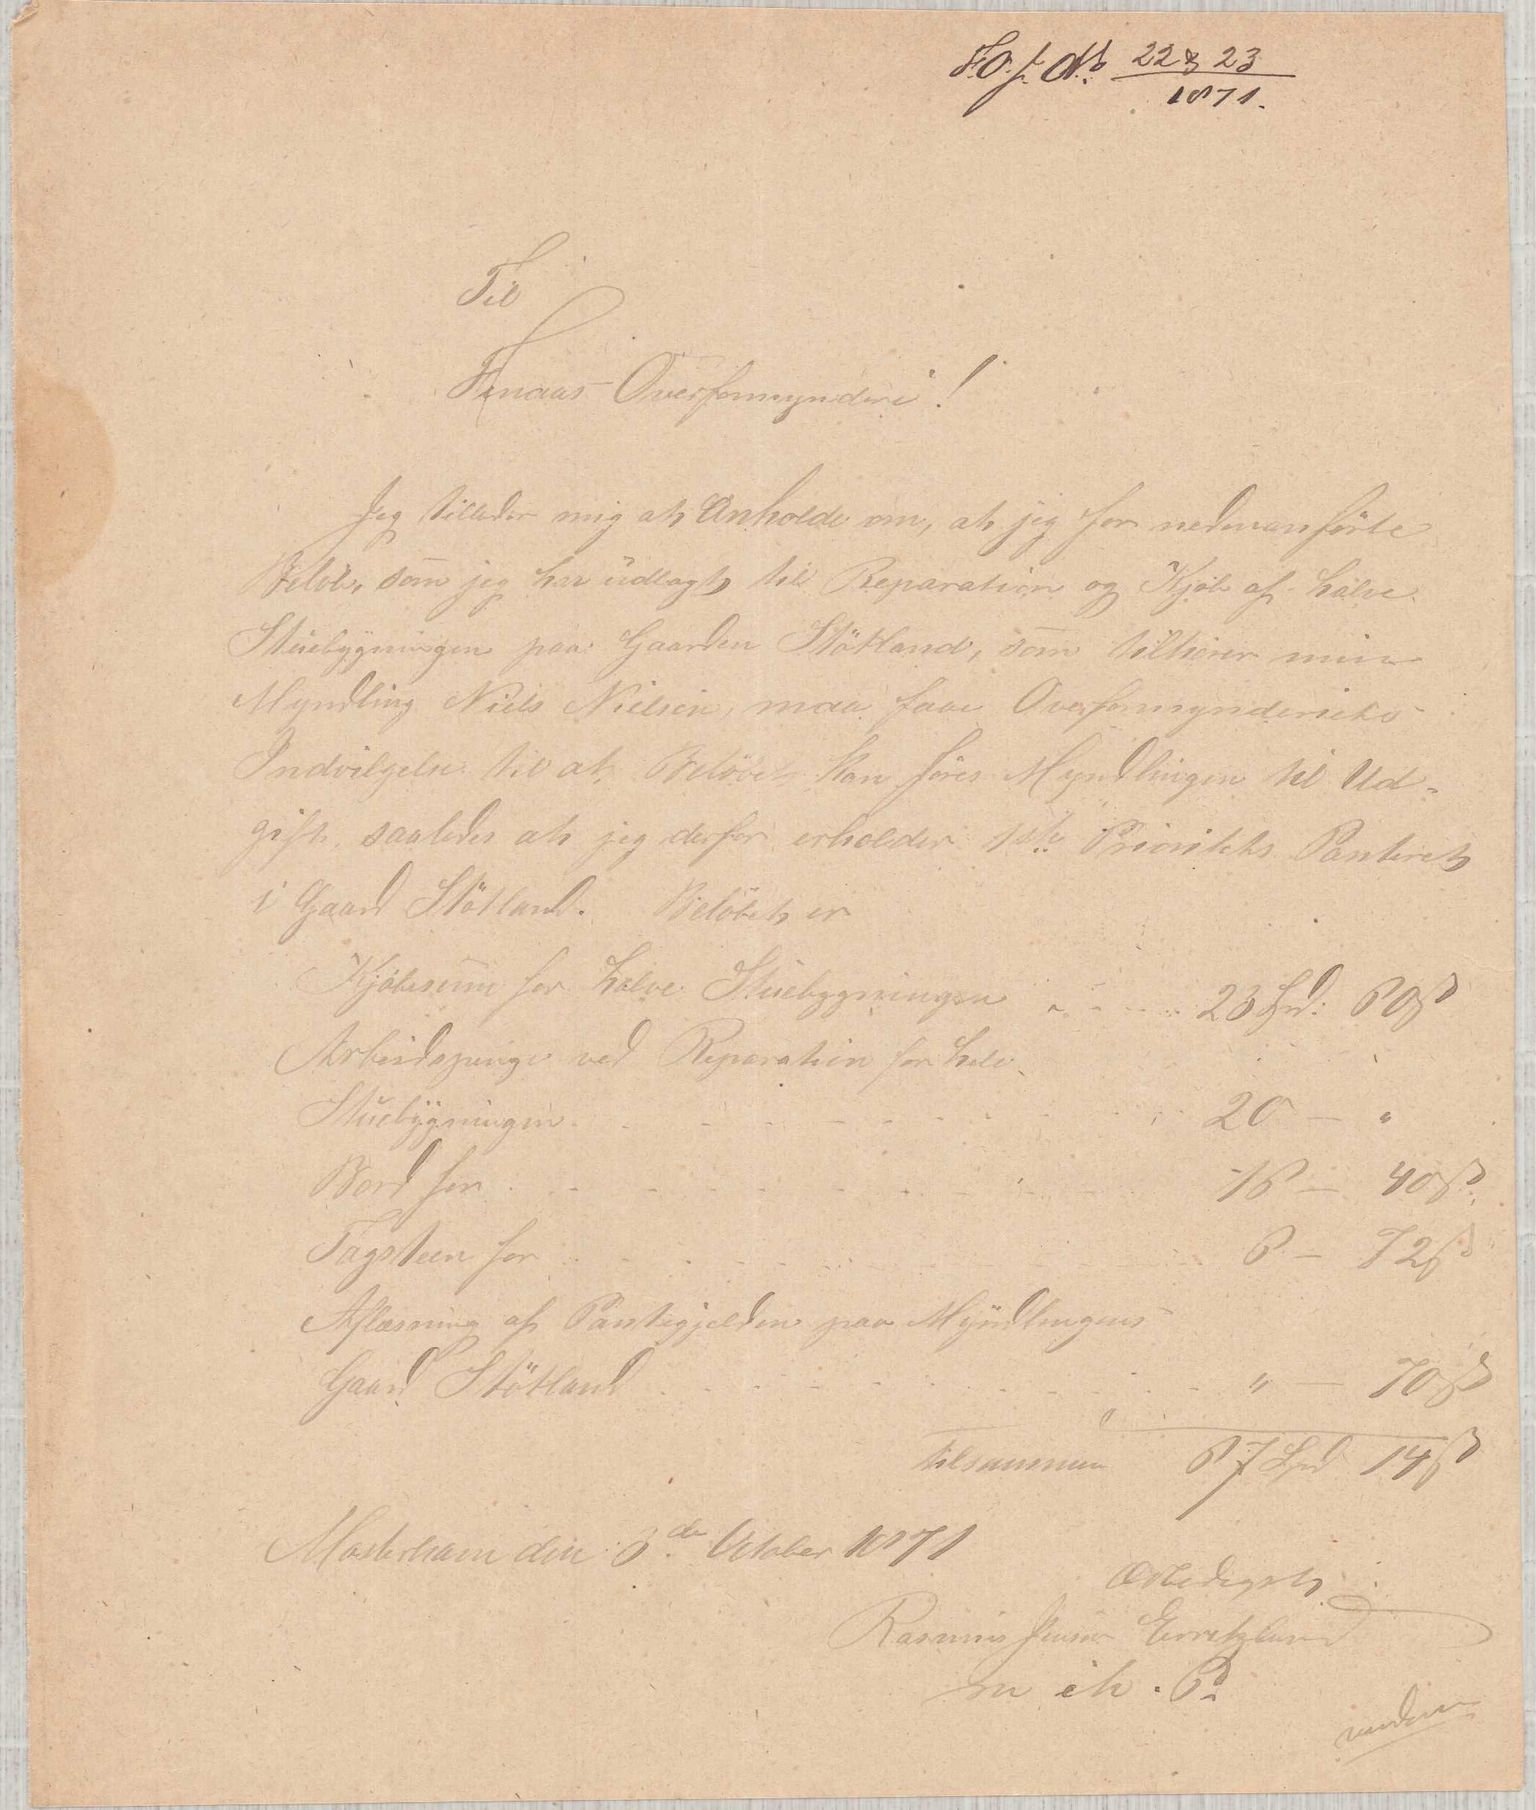 F. O. f. No 22 & 23
1871.
Til
Finaas Overformynderi!
Jeg tillader mig at Anholde om, at jeg for nedenanförte
Belöb, som jeg har udlagt til Reparation og Kjöb af halve
Stuebygningen paa Gaarden Stötland, som tilhörer min
Myndling Niels Nielsen, maa faae Overformynderiets
Indvilgelse til at Belöbet kan föres Myndlingen til Ud-
gift, saaledes at jeg derfor erholder 1ste Prioritets Panteret
i Gaard Stötland. Belöbet er
Kjöbesum for halve Stuebygningen . . . . . 23 Spd: 60 ß
Arbeidspenge ved Reparation for hele
Stuebygningen . . . . . 20 — "
Bord for . . . . . 16 — 40 ß
Tagsteen for . . . . . 6 — 72 ß
Aflæsning af Pantegjelden paa Myndlingens
Gaard Stötland . . . . . " — 70 ß
tilsammen 67 Spd 14 ß
Mosterhavn den 3de October 1871
Ærbedigst
Rasmus Jensen
m i h. P.